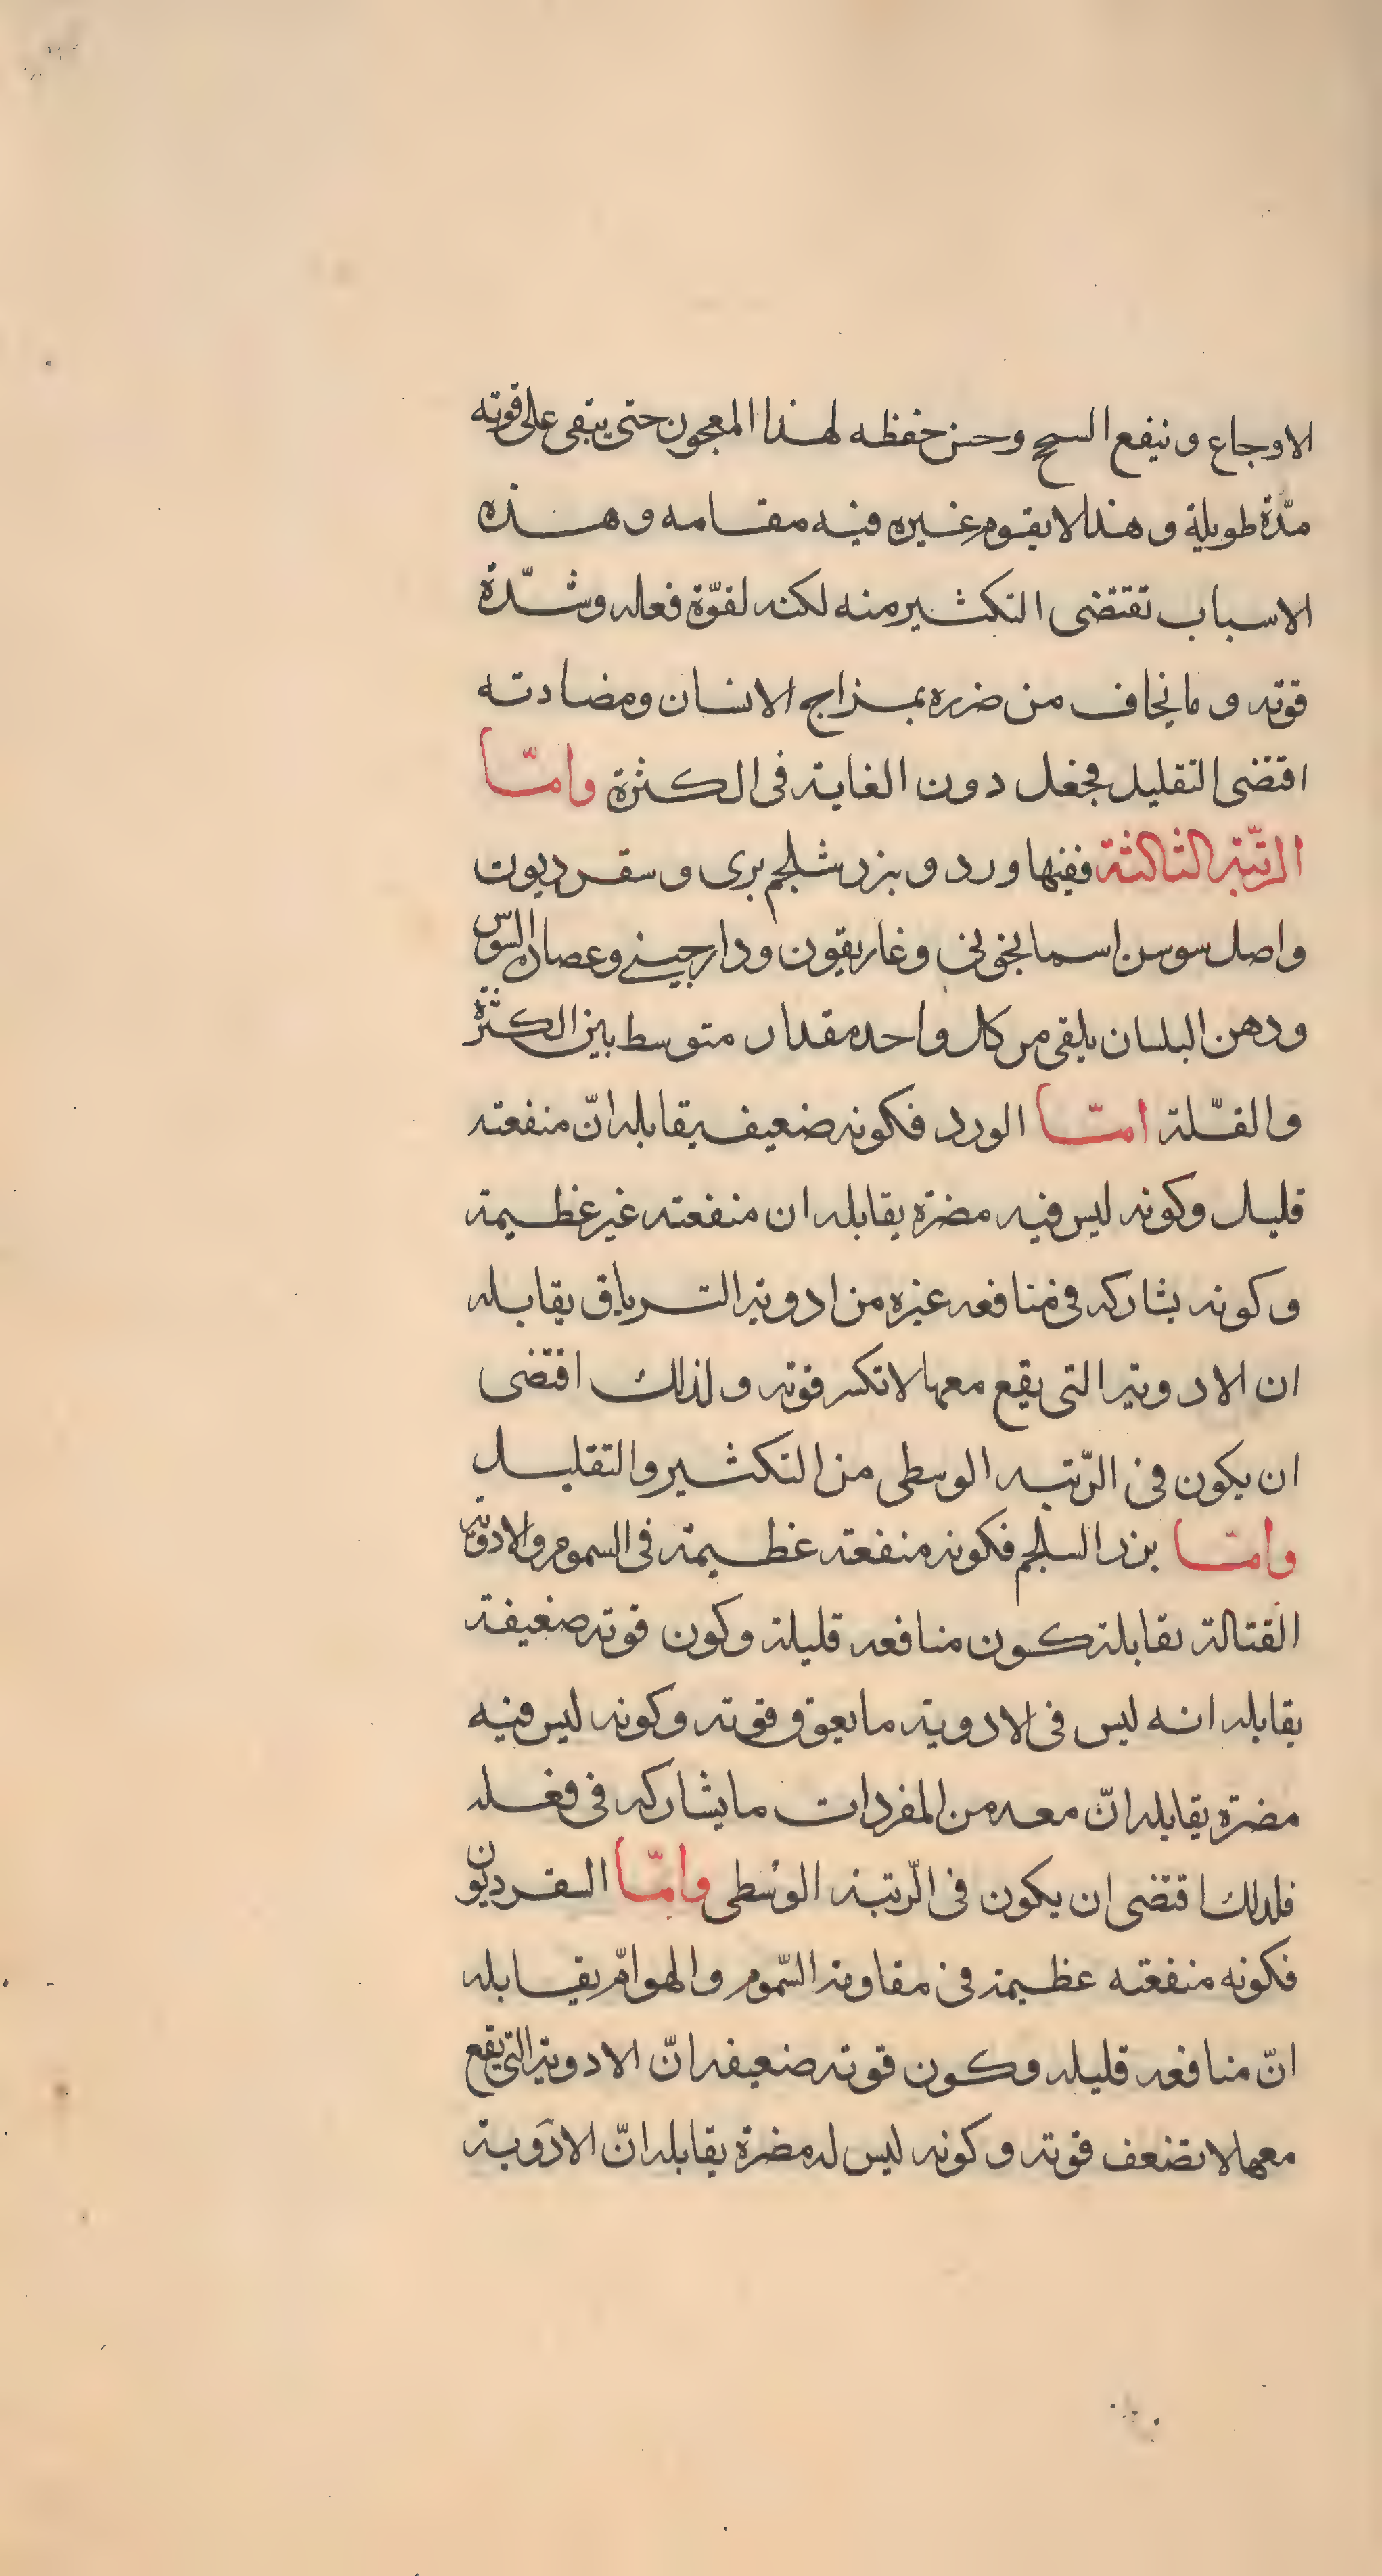 الاوجاع وينفع السحج وحسن حفظه لهذا المعجون حتى يبقى على قوته
مدّة طويلة وهذا لا يقوم غيره فيه مقامه وهذه
الاسباب تقتضى التكثير منه لكنه لقوّة فعله وشدّة
قوته وما يخاف من ضرره بمزاج الانسان ومضادته
اقتضى التقليل فجعل دون الغاية فى الكثرة وامّا
الرتّبة الثالثة ففيها ورد وبزر شلجم برى وسقرديون
واصل سوسن اسمانجونى وغاريقون ودارجينى وعصارة السوس
ودهن البلسان يلقى من كل واحد مقدار متوسط بين الكثرة
والقلّة امّا الورد فكونه ضعيف يقابله انّ منفعته
قليل وكونه ليس فيه مضرة يقابله ان منفعته غير عظيمة
وكونه يشاركه فى منافعه غيره من ادوية الترياق يقابله
ان الادوية التى يقع معها لا تكسر قوته ولذلك اقتضى
ان يكون فى الرّتبه الوسطى من التكثير والتقليل
وامّا بزر السلجم فكونه منفعته عظيمة فى السموم والادوية
القتالة يقابلة كون منافعه قليلة وكون قوته ضعيفة
يقابله انه ليس فى الادوية ما يعوق قوته وكونه ليس فيه
مضرّة يقابله انّ معه من المفردات ما يشاركه فى فعله
فلدلك اقتضى ان يكون فى الرّتبة الوسطى وامّا السقرديون
فكونه منفعته عظيمة فى مقاومة السّموم والهوامّ يقابله
انّ منافعه قليله وكون قوته ضعيفه انّ الادوية التى يقع
معها لا تضعف قوته وكونه ليس له مضرة يقابله انّ الادوية